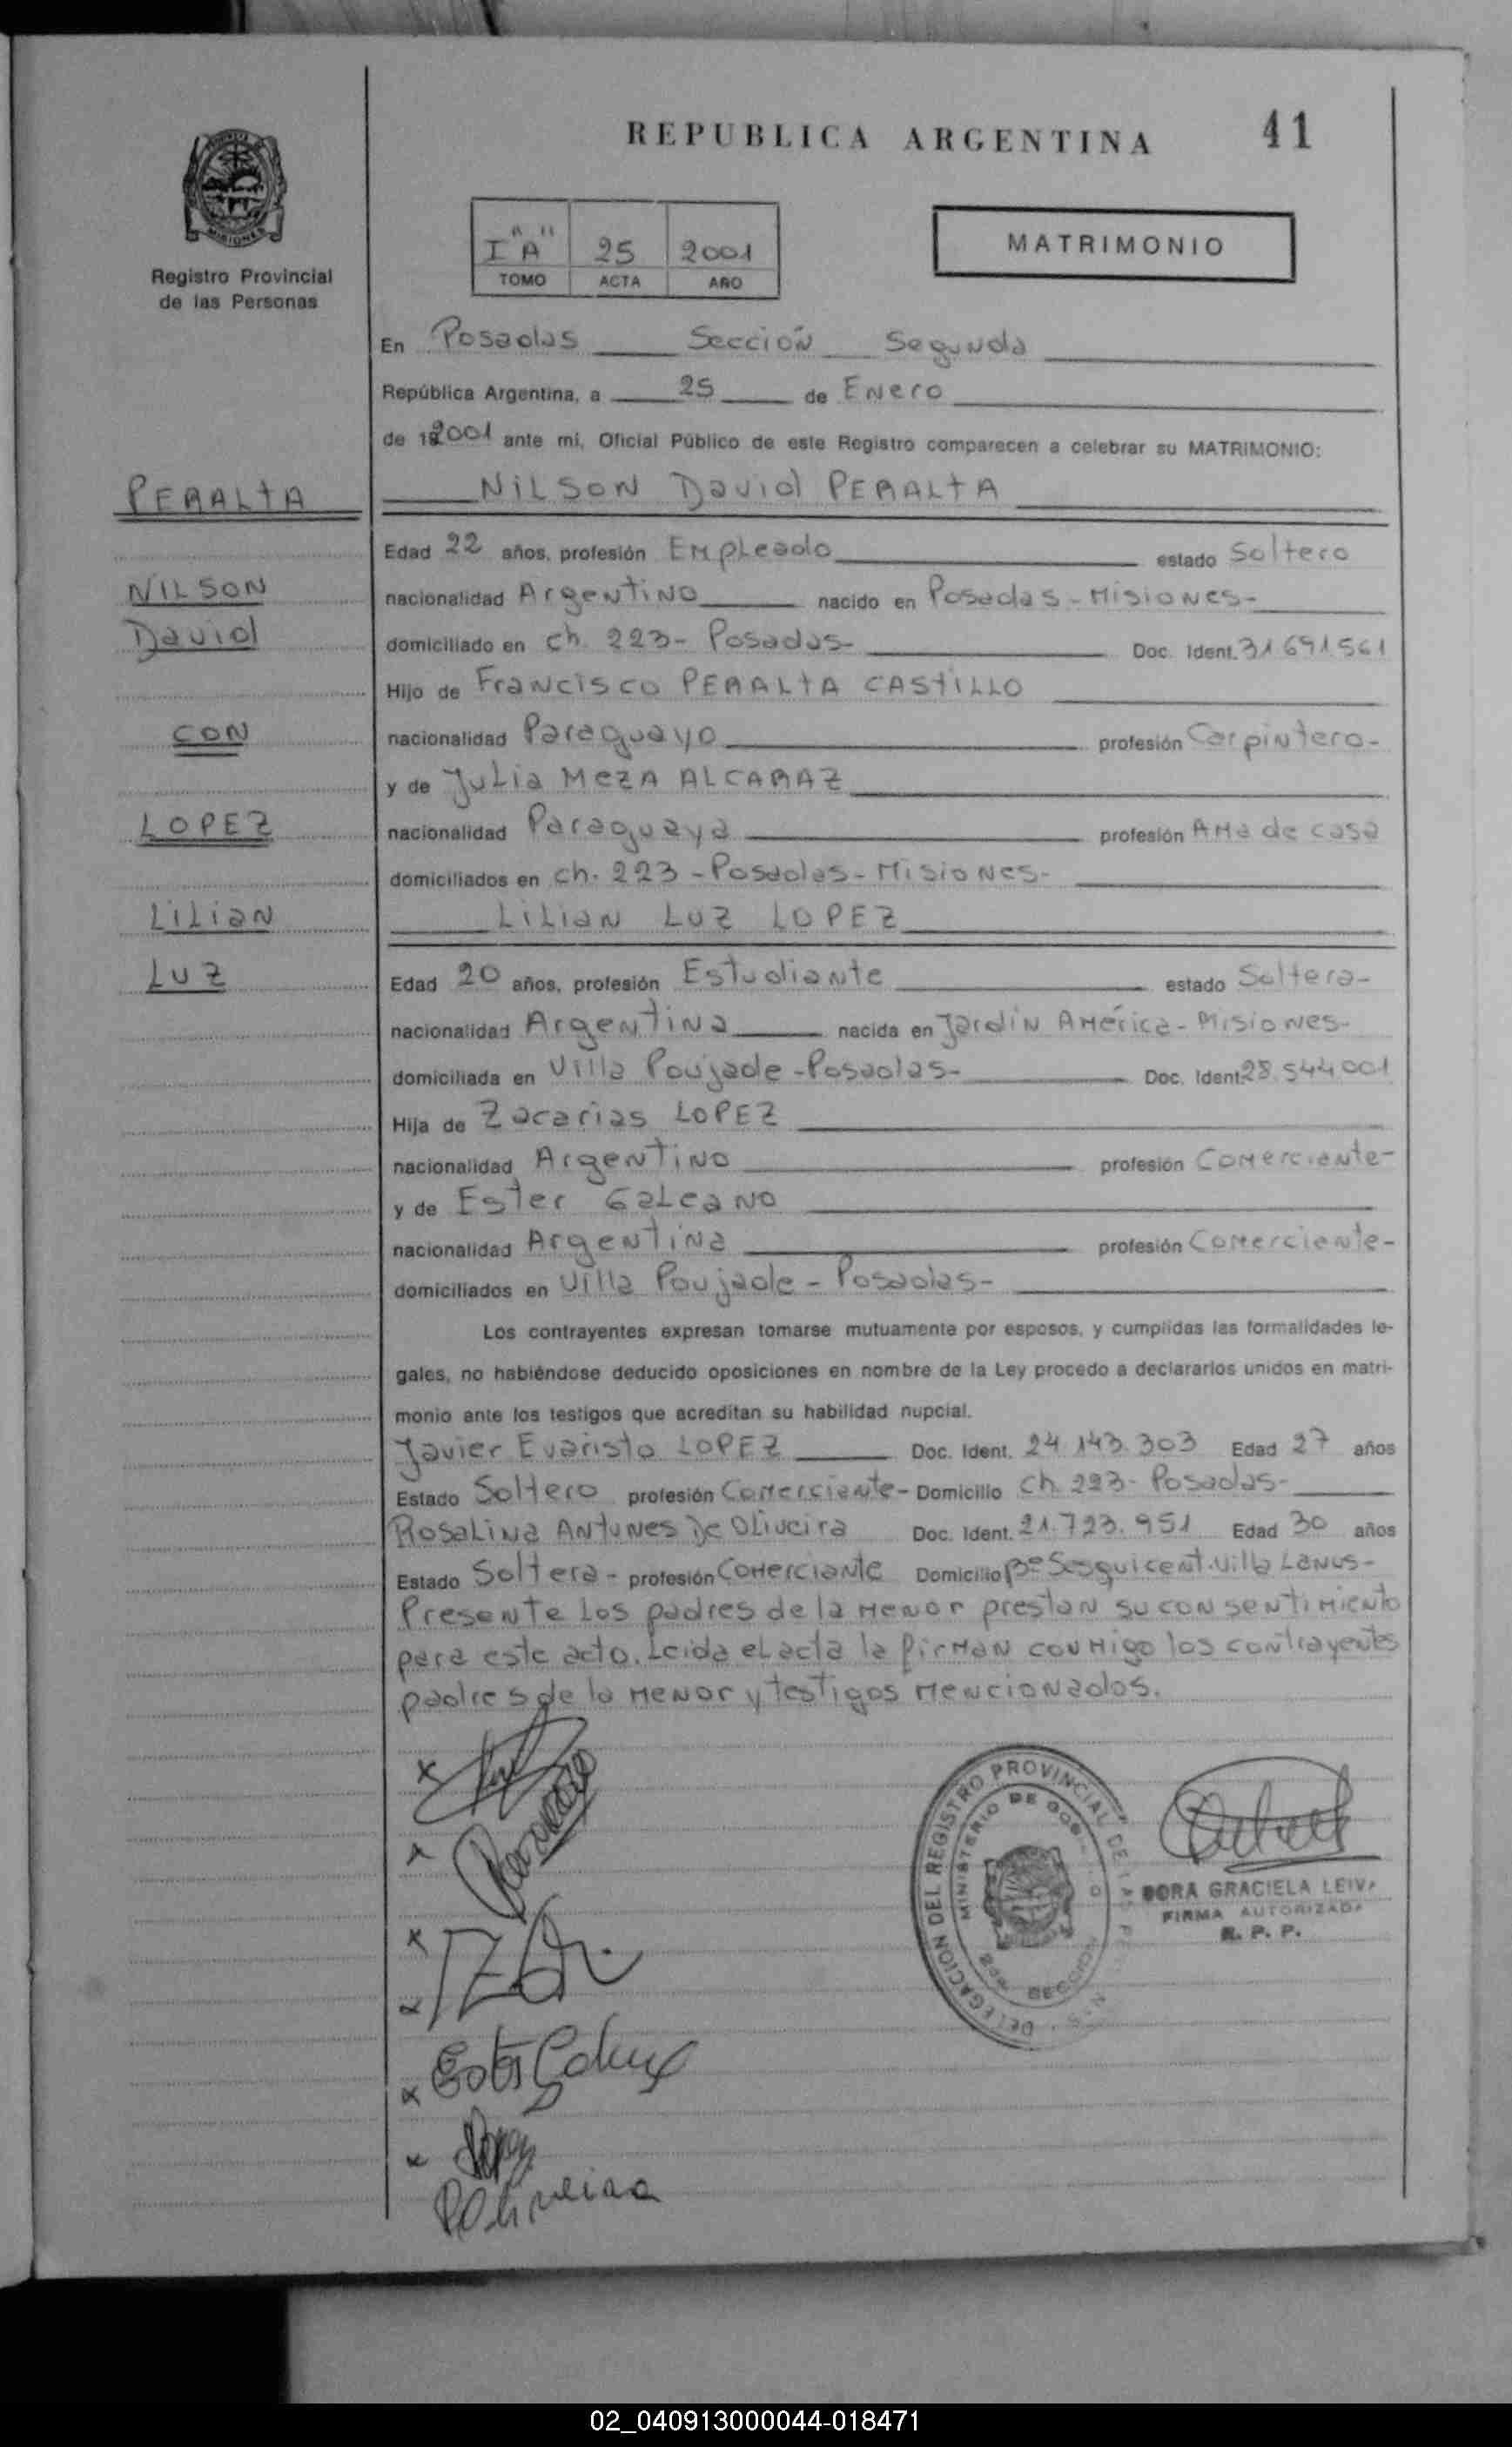 REPUBLICA ARGENTINA 41
MISIONES
Registro Provincial
de las Personas
I "A" 25 2001
TOMO ACTA AÑO
MATRIMONIO
En Posadas Sección Segunda
República Argentina, a 25 de Enero
de 2001 ante mí, Oficial Público de este Registro comparecen a celebrar su MATRIMONIO:
PERALTA
NILSON David PERALTA
Edad 22 años, profesión Empleado estado Soltero
NILSON
nacionalidad Argentino nacido en Posadas - Misiones-
David
domiciliado en ch. 223- Posadas- Doc. Ident. 31 691.561
Hijo de Francisco PERALTA CASTILLO
CON
nacionalidad Paraguayo profesión Carpintero-
y de Julia MEZA ALCARAZ
LOPEZ
nacionalidad Paraguaya profesión Ama de casa
domiciliados en ch. 223 - Posadas - Misiones-
LILIAN
LILIAN LUZ LOPEZ
LUZ
Edad 20 años, profesión Estudiante estado Soltera-
nacionalidad Argentina nacida en Jardín América - Misiones-
domiciliada en Villa Poujade - Posadas- Doc. Ident. 28.544 001
Hija de Zacarias LOPEZ
nacionalidad Argentino profesión Comerciante-
y de Ester Galeano
nacionalidad Argentina profesión Comerciante-
domiciliados en Villa Poujade - Posadas-
Los contrayentes expresan tomarse mutuamente por esposos, y cumplidas las formalidades le-
gales, no habiéndose deducido oposiciones en nombre de la Ley procedo a declararlos unidos en matri-
monio ante los testigos que acreditan su habilidad nupcial.
Javier Evaristo LOPEZ Doc. Ident. 24.143.303 Edad 27 años
Estado Soltero profesión Comerciante- Domicilio Ch. 223- Posadas-
Rosalina Antunes De Oliveira Doc. Ident. 21.723.951 Edad 30 años
Estado Soltera - profesión Comerciante Domicilio Bº Sesquicent. Villa Lanus-
Presente los padres de la menor prestan su consentimiento
para este acto. Leida el acta la firman conmigo los contrayentes
padres de la menor y testigos mencionados.
DELEGACION DEL REGISTRO PROVINCIAL DE LAS
MINISTERIO DE
SECCION
DORA GRACIELA LEIVA
FIRMA AUTORIZADA
R. P. P.
02_040913000044-018471